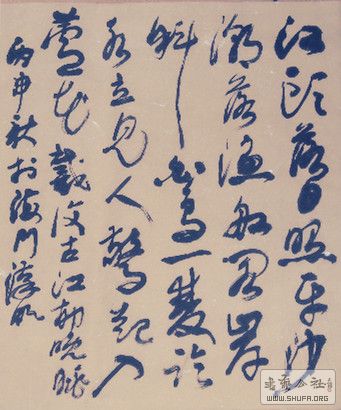 江頭落日照平沙
潮落漁船閣岸
斜白鳥一雙臨
水立見人驚起入
蘆花 戴復古江村晚眺
丙申秋於海門
書藝公社
WWW.SHUFA.ORG